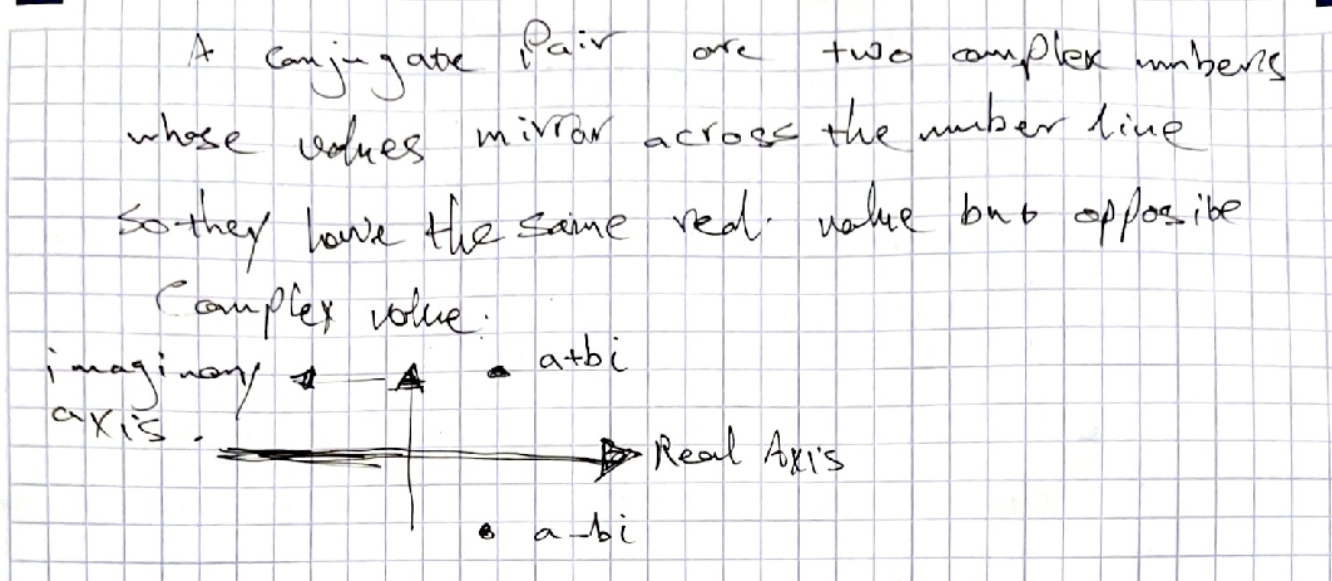 A conjugate Pair are two complex numbers
whose values mirror across the number line
so they have the same real value but opposite
Complex value.
imaginary
axis.
a+bi
Real Axis
a-bi